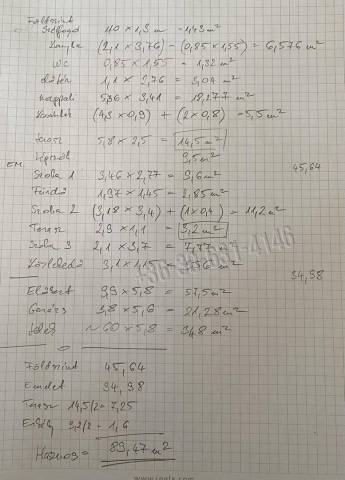 Földszint
Szélfogó 1,10 × 1,3 m = 1,43 m²
Konyha (2,1 × 3,76) - (0,85 × 1,55) = 6,576 m²
WC 0,85 × 1,55 = 1,32 m²
1,1 × 2,76 = 3,04 m²
Nappali 5,36 × 3,41 = 18,277 m²
(4,3 × 0,9) + (2 × 0,8) = 5,5 m²
Terasz 5,8 × 2,5 = 14,5 m²
Lépcső 9,5 m²
45,64
EM.
Szoba 1 3,46 × 2,77 = 9,6 m²
Fürdő 1,97 × 1,45 = 2,85 m²
Szoba 2 (3,18 × 3,4) + (1 × 0,4) = 11,2 m²
Terasz 2,9 × 1,1 = 3,2 m²
Szoba 3 2,1 × 3,7 = 7,77
Közlekedő 3,1 × 1,15 = 3,56 m²
34,98
Előkert 9,9 × 5,8 = 57,5 m²
Garázs 3,8 × 5,6 = 21,28 m²
~ 60 × 5,8 = 348 m²
Földszint 45,64
Emelet 34,98
Terasz 14,5/2 = 7,25
Erkély 3,2/2 = 1,6
Hasznos = 89,47 m²